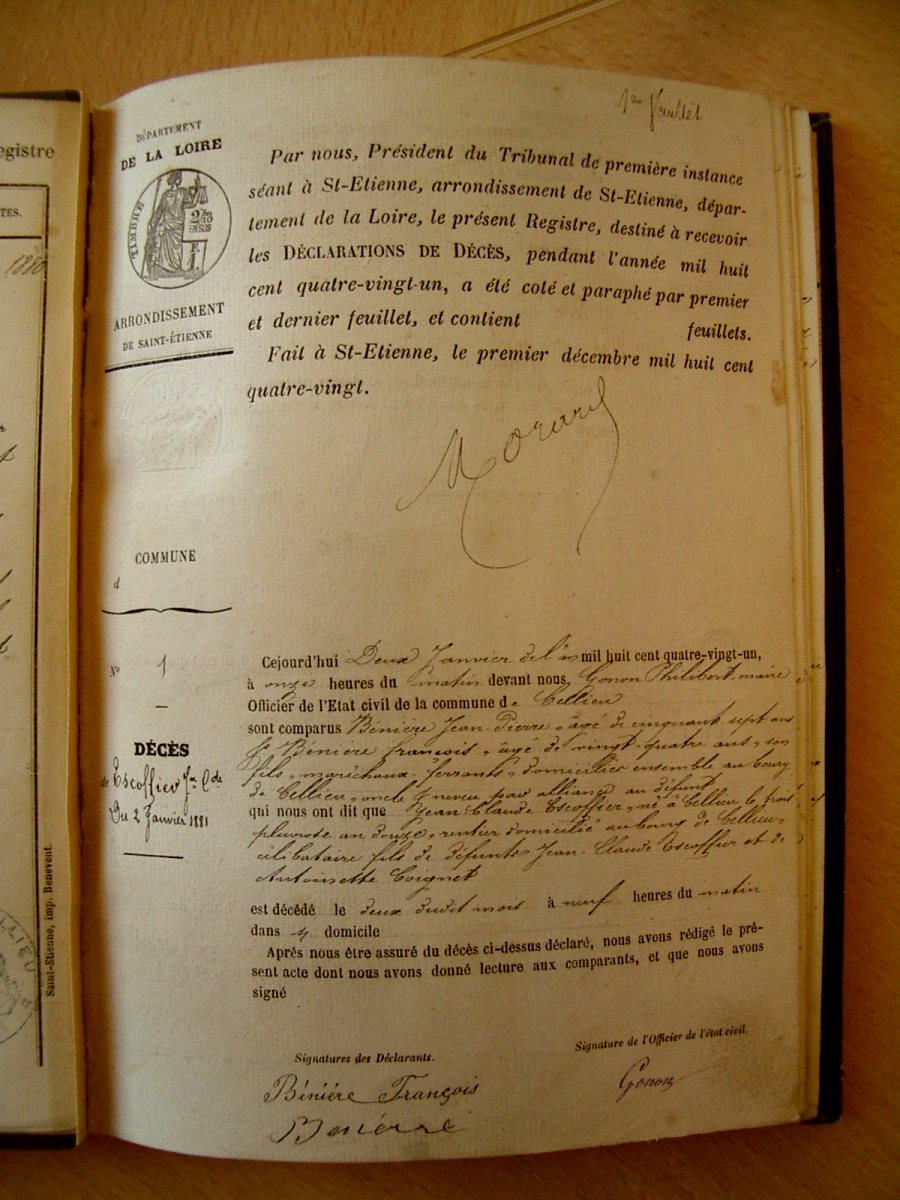 egistre
TES.
1880
1er feuillet
DÉPARTEMENT
DE LA LOIRE
TIMBRE
2/10
EN SUS
ARRONDISSEMENT
DE SAINT-ÉTIENNE
Par nous, Président du Tribunal de première instance
séant à St-Etienne, arrondissement de St-Etienne, dépar-
tement de la Loire, le présent Registre, destiné à recevoir
les DÉCLARATIONS DE DÉCÈS, pendant l'année mil huit
cent quatre-vingt-un, a été coté et paraphé par premier
et dernier feuillet, et contient feuillets.
Fait à St-Etienne, le premier décembre mil huit cent
quatre-vingt.
COMMUNE
d
N° 1
DÉCÈS
de Escoffier Jn Cde
Du 2 Janvier 1881
Saint-Etienne, imp. Benevent.
Cejourd'hui Deux Janvier de l'an mil huit cent quatre-vingt-un,
à onze heures du matin devant nous, Gonon Philibert, maire
Officier de l'Etat civil de la commune de Cellieu
sont comparus Bénière Jean Pierre, âgé de cinquante sept ans
& Bénière françois, âgé de vingt-quatre ans, son
fils, maréchaux-ferrants, domiciliés ensemble au bourg
de Cellieu, oncle & neveu par alliance au défunt
qui nous ont dit que Jean Claude Escoffier, né à Cellieu le trois
pluviose an douze, rentier domicilié au bourg de Cellieu,
célibataire fils de défunts Jean-Claude Escoffier et de
Antoinette Coignet
est décédé le deux dudit mois à neuf heures du matin
dans domicile
Après nous être assuré du décès ci-dessus déclaré, nous avons rédigé le pré-
sent acte dont nous avons donné lecture aux comparants, et que nous avons
signé
Signatures des Déclarants.
Signature de l'Officier de l'état civil.
Bénière François
Gonon
Benière